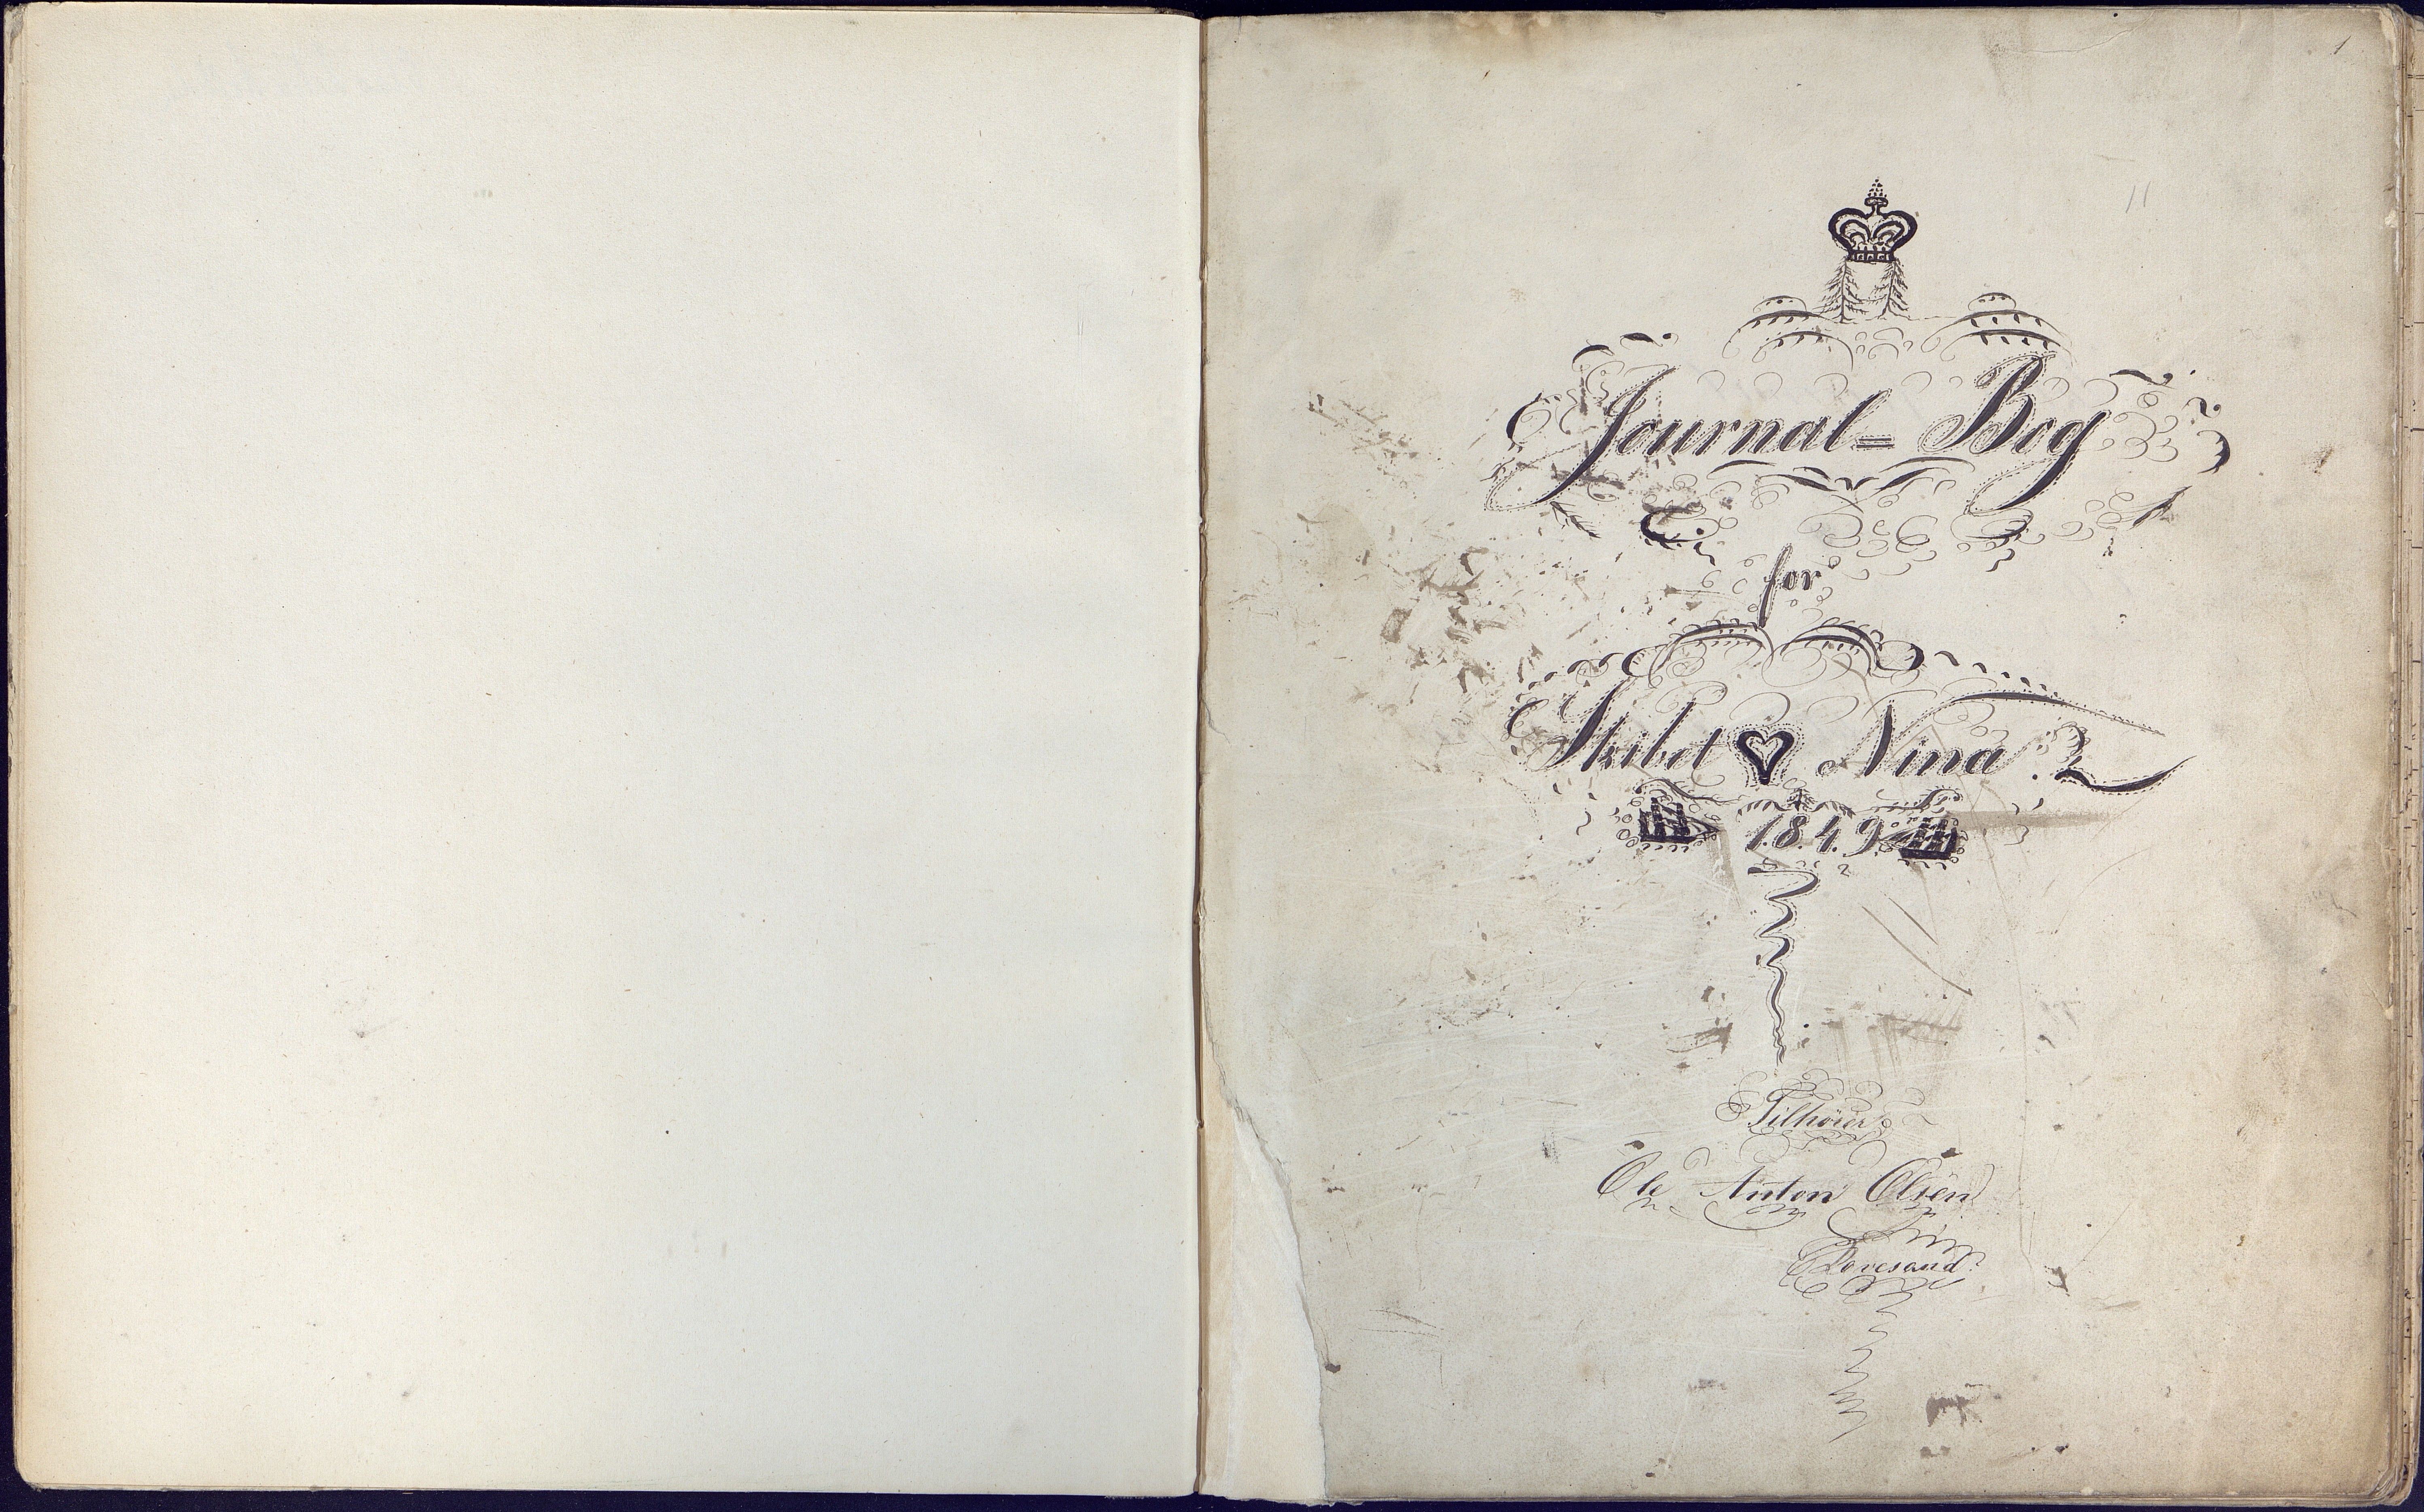 1
11
Journal = Bog
for
Skibet Nina
1.8.4.9.
Tilhører
Ole Anton Olsen
Rovesand